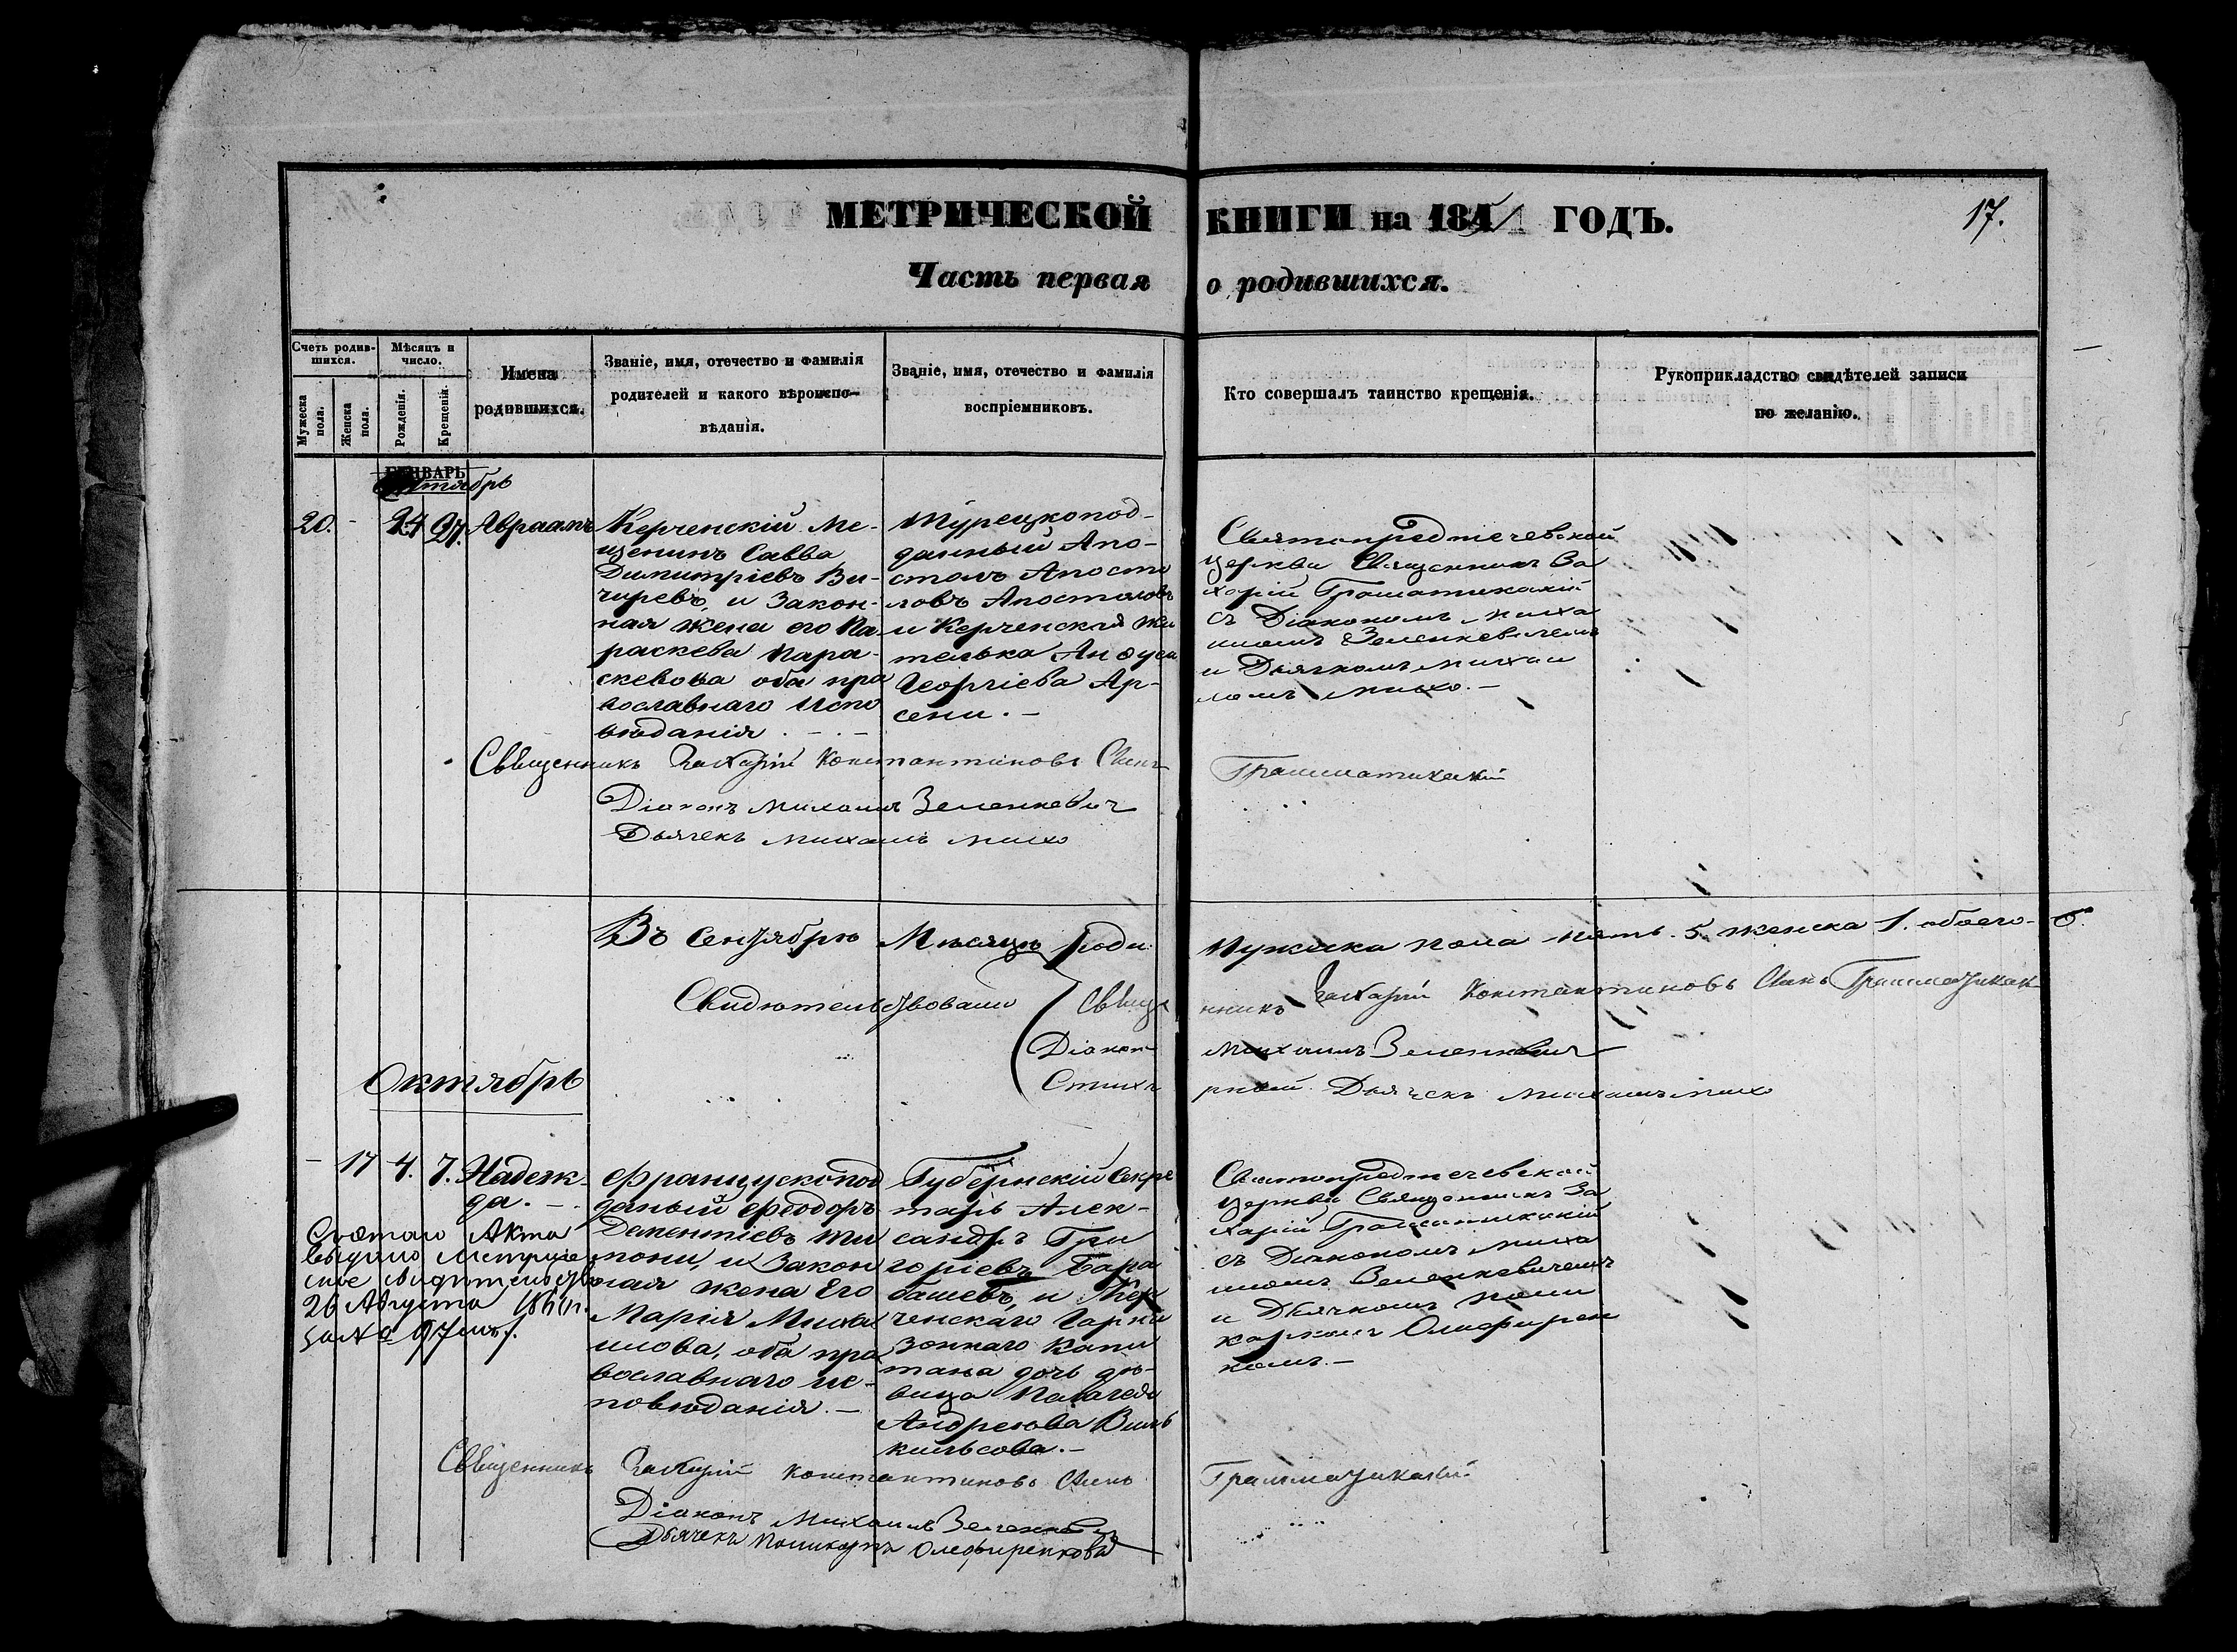 МЕТРИЧЕСКОЙ КНИГИ на 1851 ГОДЪ.
17.
Часть первая о родившихся.
Счетъ родив-
шихся.
Мужеска
пола.
Женска
пола.
Мѣсяцъ и
число.
Рожденія.
Крещенія.
Имена
родившихся.
Званіе, имя, отечество и фамилія
родителей и какого вѣроиспо-
вѣданія.
Званіе, имя, отечество и фамилія
воспріемниковъ.
Кто совершалъ таинство крещенія.
Рукоприкладство свидѣтелей записи
по желанію.
ГЕНВАРЬ
20. - 24 27. Авраамъ
Керченскій Ме-
щенинъ Савва
Димитріевъ Ви-
чиревъ, и Закон-
ная жена его Па-
раскева Пара-
скевова оба пра
вославнаго Испо
вѣданія. - . -
Турецкопод-
данный Апо-
столъ Апосто
ловъ Апостоловъ
и Керченская жи
телька
Георгіева Ар-
сени. -
Святопредтечевской
церкви Священникъ За
харій Граматикакій
съ Діакономъ Миха
иломъ Зеленкевичемъ
и Дьячкомъ Михаи
ломъ Михо. -
Священникъ Захарій Константиновъ Сынъ Грамматикакій
Діаконъ Михаилъ Зеленкевичъ
Дьячекъ Михаилъ Михо
Въ Сентябрѣ Мѣсяцѣ роди
Мужеска пола пять. 5. женска 1. обоего - 6.
Свидѣтельствовали Священникъ Захарій Константиновъ Сынъ Грамматикак
Діаконъ Михаилъ Зеленкевич
Стихарный Дьячекъ Михаилъ Михо
Октябрь
- 17 4. 7. Надеж-
да. -
Французскопод
даный Феодоръ
Дементіевъ
и Закон
ная жена Его
Марія Михаи
лова, оба пра
вославнаго ис-
повѣданія. -
Губернскій Секре
тарь Алек-
сандръ Гри
горіевъ Бара
башевъ, и Кер
ченскаго Гарни
зоннаго Капи
тана дочь дѣ-
вица Пелагея
Андреева Виль
кильсова. -
Святопредтечевской
церкви Священникъ За
харій Граматикакій
съ Діакономъ Миха
иломъ Зеленкевичемъ
и Дьячкомъ Поли
карпомъ Олефирен
комъ. -
Съ Акта
выдано Метриче
ское
26 Августа
за № 97
Священникъ Захарій Константиновъ Сынъ Грамматикакій
Діаконъ Михаилъ Зеленкевич
Дьячекъ Поликарпъ Олефиренковъ